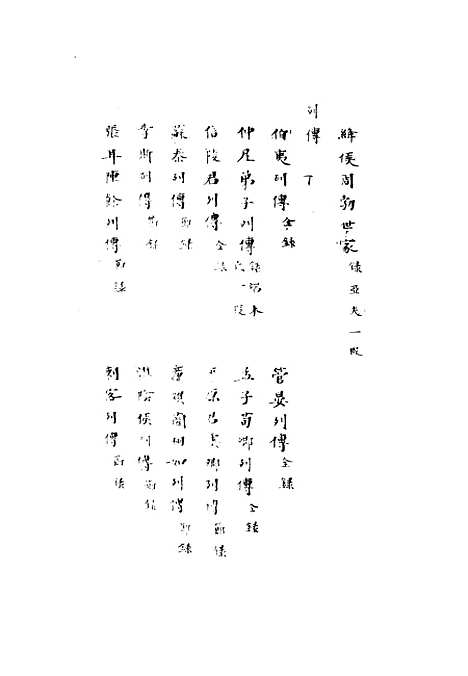 絳侯周勃世家 錄亞夫一段
列傳 下
伯夷列傳 全錄
管晏列傳 全錄
仲尼弟子列傳 錄 一段
孟子荀卿列傳 全錄
信陵君列傳 全錄
平原君虞卿列傳 節錄
蘇秦列傳 節錄
廉頗藺相如列傳 節錄
李斯列傳 節錄
淮陰侯列傳 節錄
張耳陳餘列傳 節錄
刺客列傳 節錄